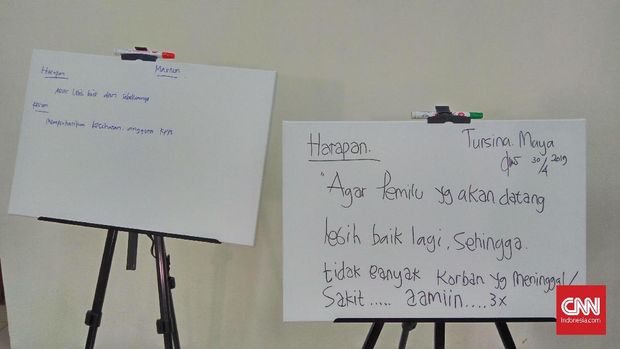 Harapan
Marsuri
Agar lebih baik dari sebelumnya
Pesan
memperhatikan kesehatan anggota KPPS
Harapan.
Tursina. Maya
30/4 2019
"Agar Pemilu yg akan datang
lebih baik lagi, Sehingga.
tidak Banyak Korban yg meninggal/
Sakit..... aamiin....3x
CNN
Indonesia.com